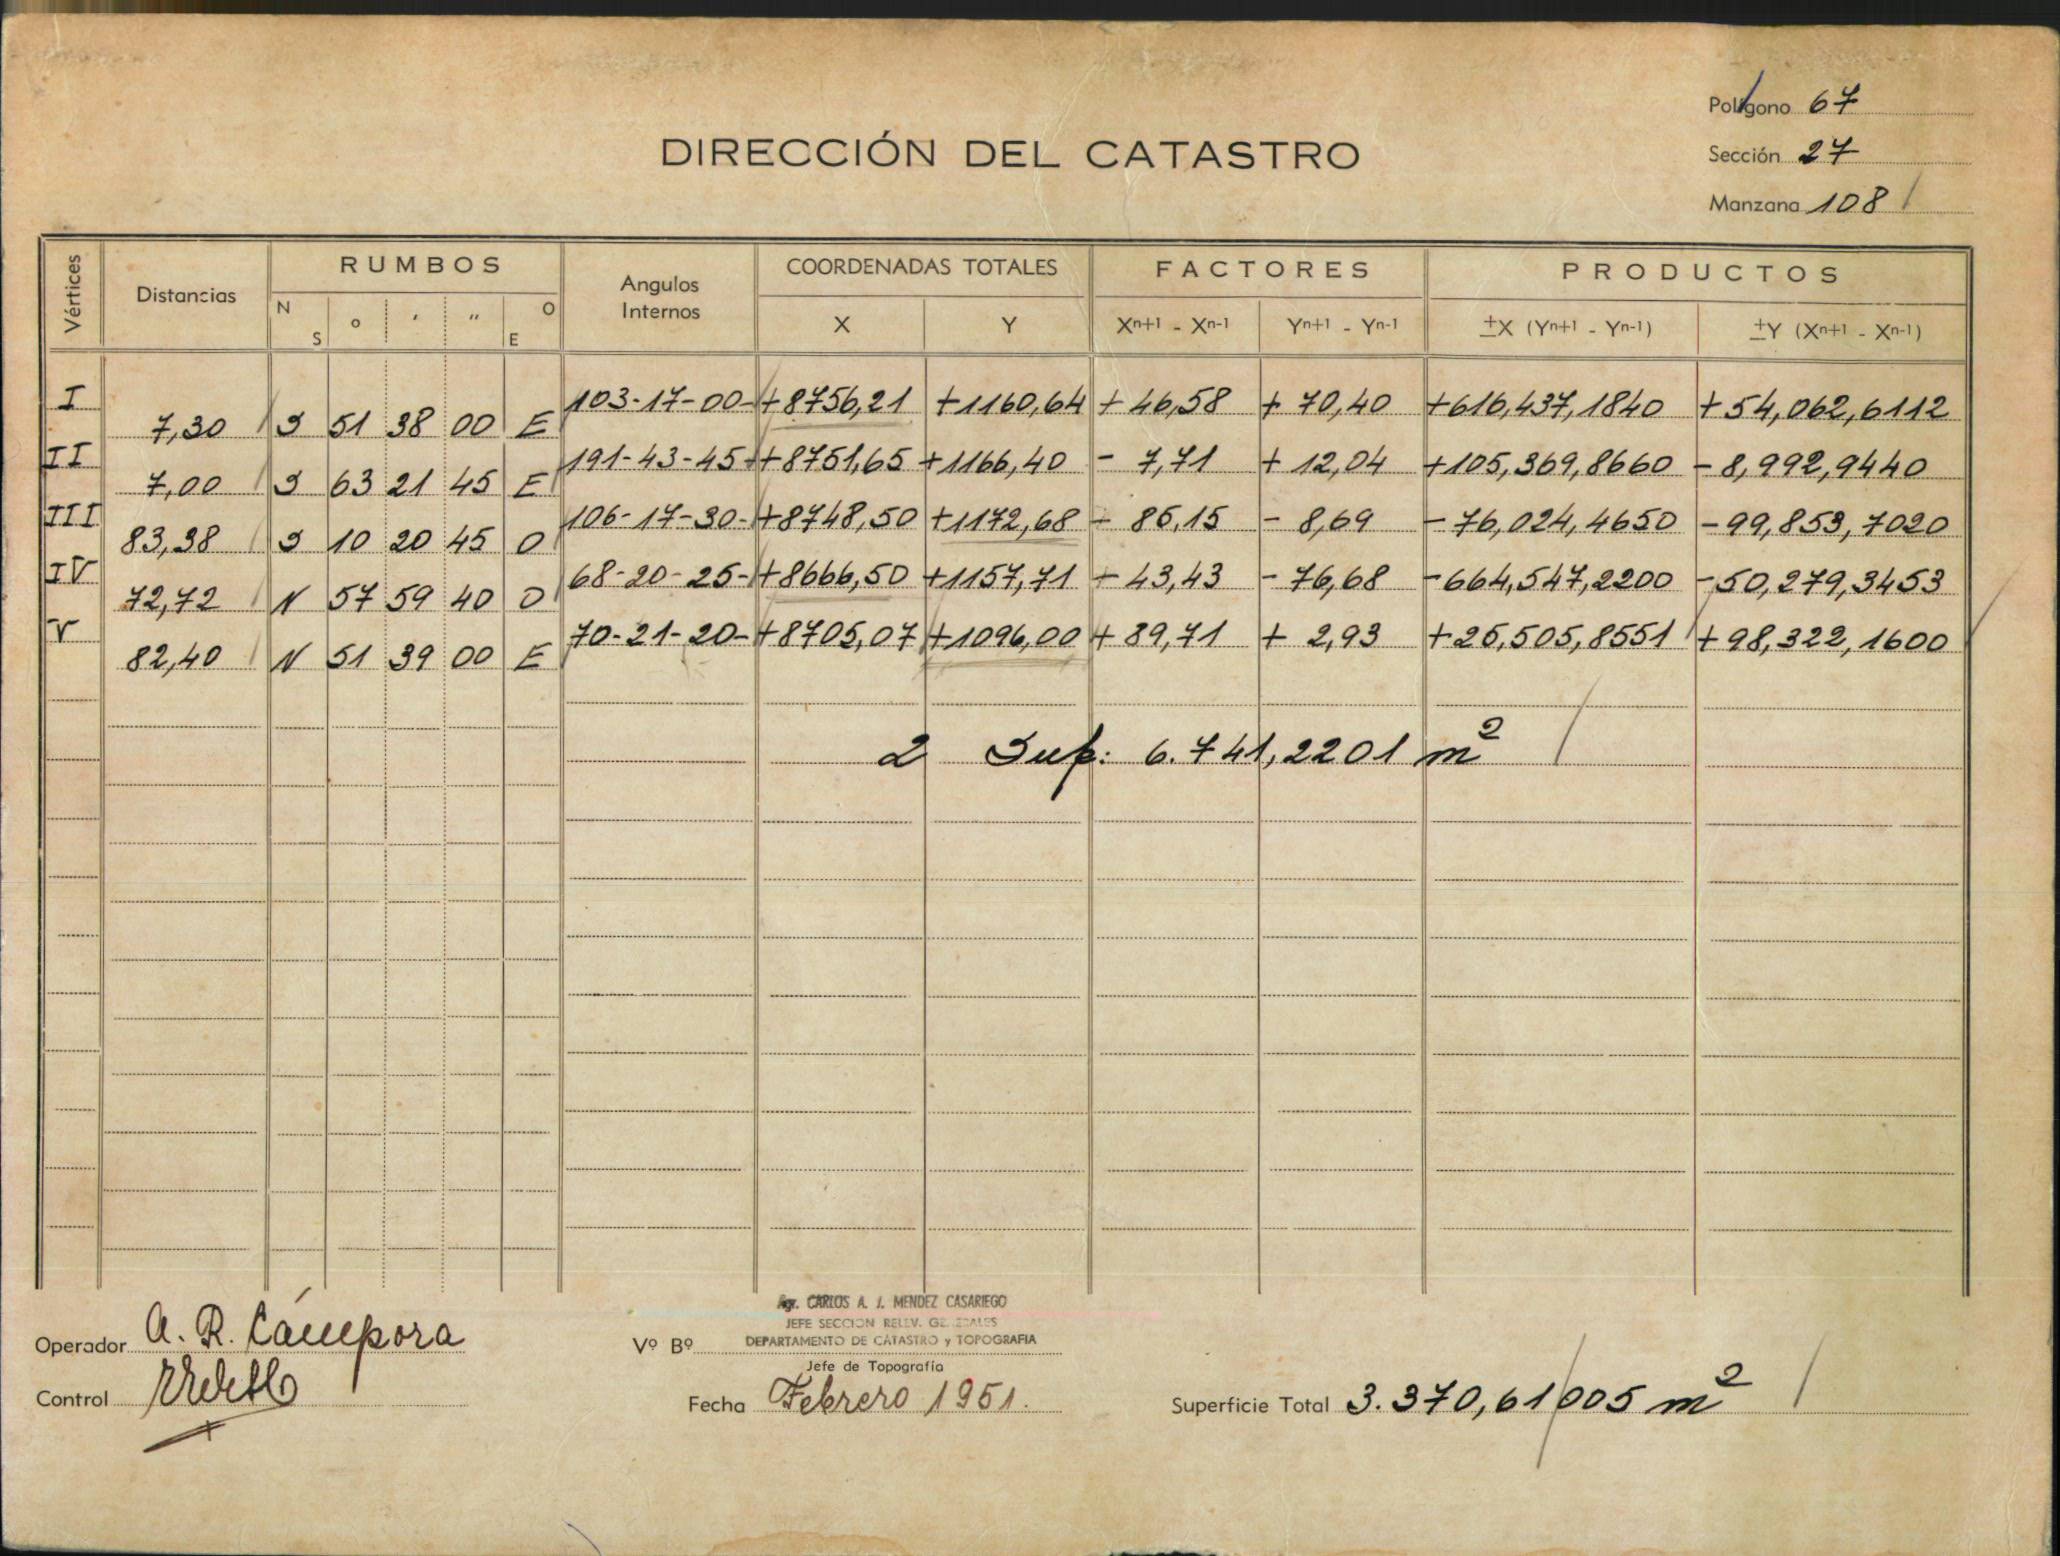 Polígono 67
DIRECCIÓN DEL CATASTRO
Sección 27
Manzana 108
Vértices Distancias RUMBOS Angulos Internos COORDENADAS TOTALES FACTORES PRODUCTOS
N S ° ' " O E X Y Xn+1 - Xn-1 Yn+1 - Yn-1 ±X (Yn+1 - Yn-1) ±Y (Xn+1 - Xn-1)
I 103-17-00- +8756,21 +1160,64 + 46,58 + 70,40 +616,437,1840 +54,062,6112
7,30 S 51 38 00 E
II 191-43-45- +8751,65 +1166,40 - 7,71 + 12,04 +105,369,8660 -8,992,9440
7,00 S 63 21 45 E
III 106-17-30- +8748,50 +1172,68 - 85,15 - 8,69 -76,024,4650 -99,853,7020
83,38 S 10 20 45 O
IV 68-20-25- +8666,50 +1157,71 - 43,43 - 76,68 -664,547,2200 -50,279,3453
72,72 N 57 59 40 O
V 70-21-20- +8705,07 +1096,00 + 89,71 + 2,93 +25,505,8551 +98,322,1600
82,40 N 51 39 00 E
2 Sup: 6.741,2201 m²
CARLOS A. J. MENDEZ CASARIEGO
JEFE SECCION RELEV. GENERALES
Operador A. R. Cámpora Vº Bº DEPARTAMENTO DE CATASTRO y TOPOGRAFIA
Jefe de Topografía
Control Fecha Febrero 1951. Superficie Total 3.370,61/005 m²